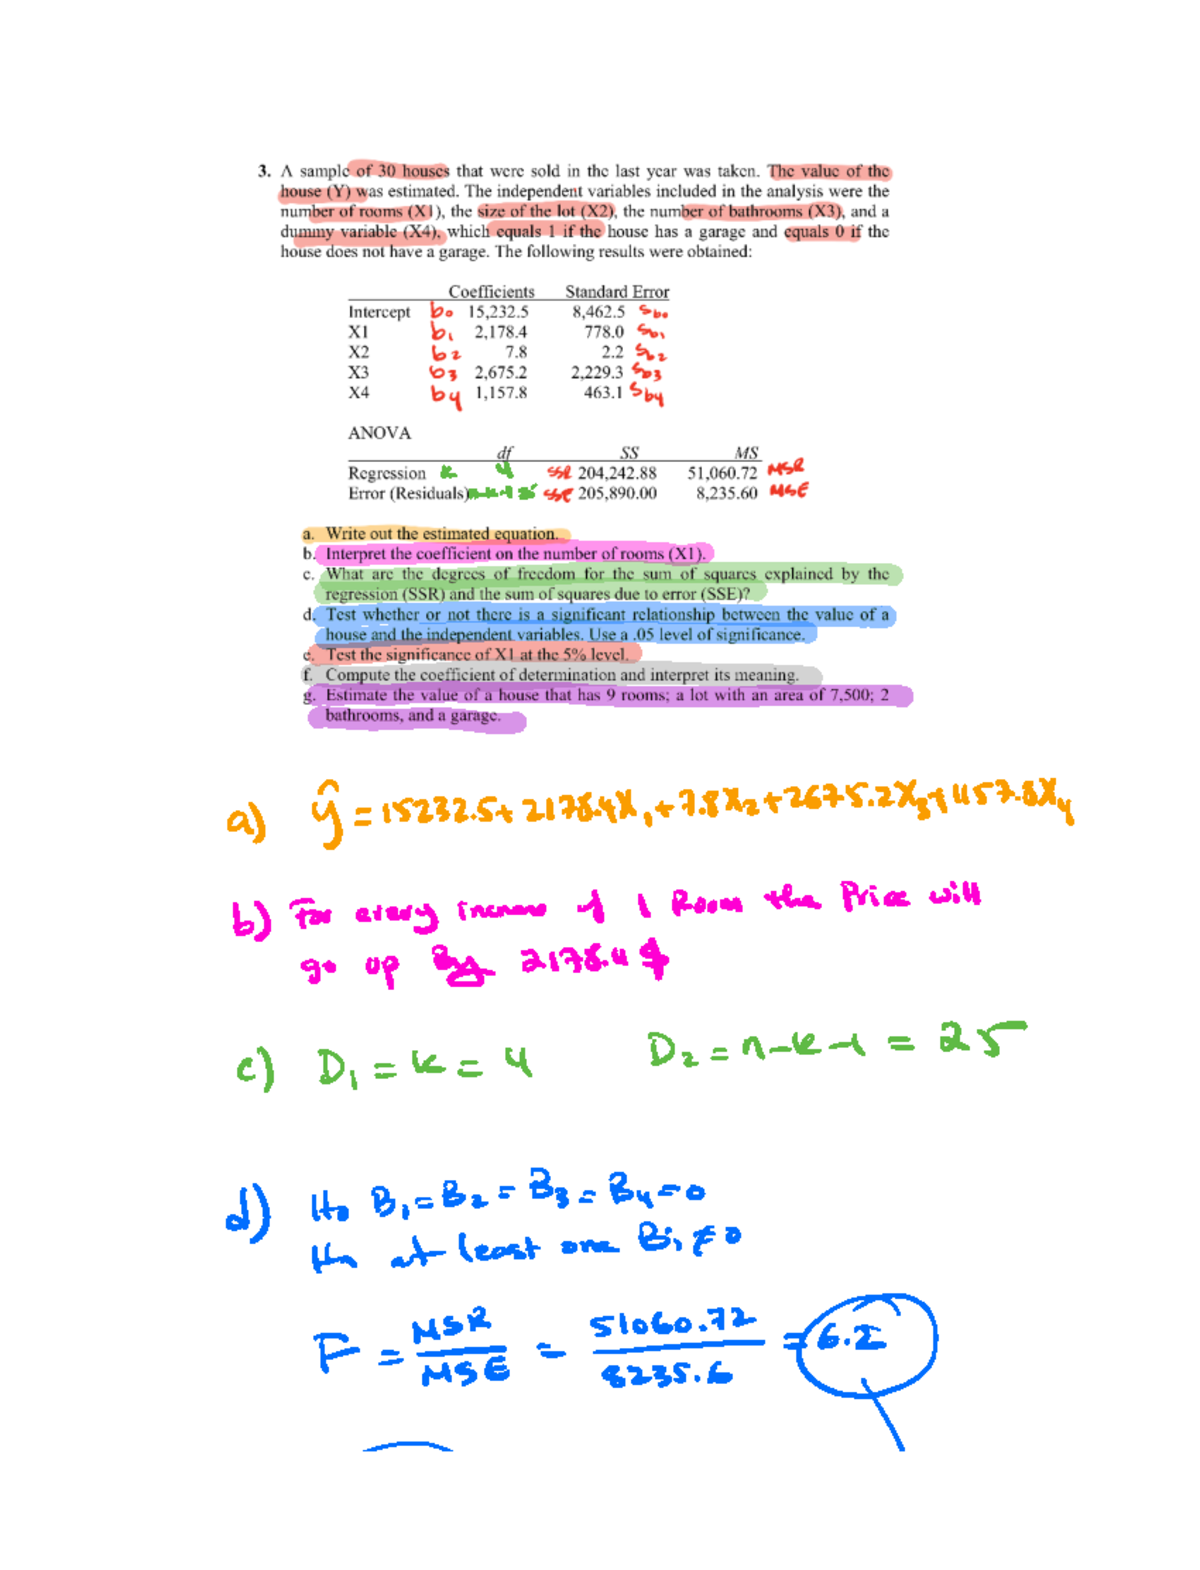 3. A sample of 30 houses that were sold in the last year was taken. The value of the
house (Y) was estimated. The independent variables included in the analysis were the
number of rooms (X1), the size of the lot (X2), the number of bathrooms (X3), and a
dummy variable (X4), which equals 1 if the house has a garage and equals 0 if the
house does not have a garage. The following results were obtained:
Coefficients Standard Error
Intercept b0 15,232.5 8,462.5 Sb0
X1 b1 2,178.4 778.0 Sb1
X2 b2 7.8 2.2 Sb2
X3 b3 2,675.2 2,229.3 Sb3
X4 b4 1,157.8 463.1 Sb4
ANOVA
df SS MS
Regression k 4 SSR 204,242.88 51,060.72 MSR
Error (Residuals) n-k-1 25 SSE 205,890.00 8,235.60 MSE
a. Write out the estimated equation.
b. Interpret the coefficient on the number of rooms (X1).
c. What are the degrees of freedom for the sum of squares explained by the
regression (SSR) and the sum of squares due to error (SSE)?
d. Test whether or not there is a significant relationship between the value of a
house and the independent variables. Use a .05 level of significance.
e. Test the significance of X1 at the 5% level.
f. Compute the coefficient of determination and interpret its meaning.
g. Estimate the value of a house that has 9 rooms; a lot with an area of 7,500; 2
bathrooms, and a garage.
a) ŷ = 15232.5 + 2178.4X1 + 7.8X2 + 2675.2X3 + 1157.8X4
b) For every increase of 1 Room the Price will
go up By 2178.4 $
c) D1 = k = 4 D2 = n-k-1 = 25
d) Ho B1 = B2 = B3 = B4 = 0
Ha at least one Bi ≠ 0
F = MSR/MSE = 51060.72/8235.6 = 6.2